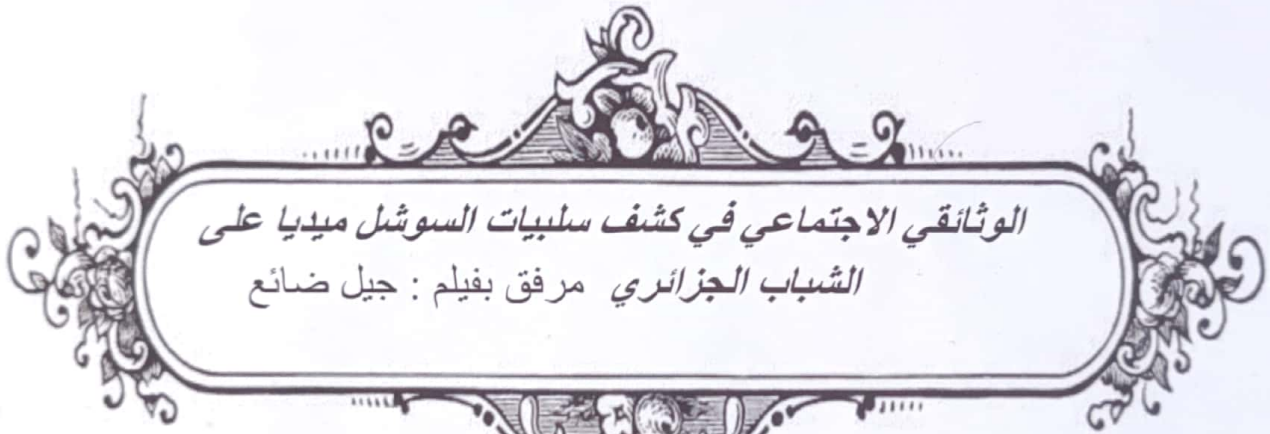 الوثائقي الاجتماعي في كشف سلبيات السوشل ميديا على
الشباب الجزائري مرفق بفيلم : جيل ضائع